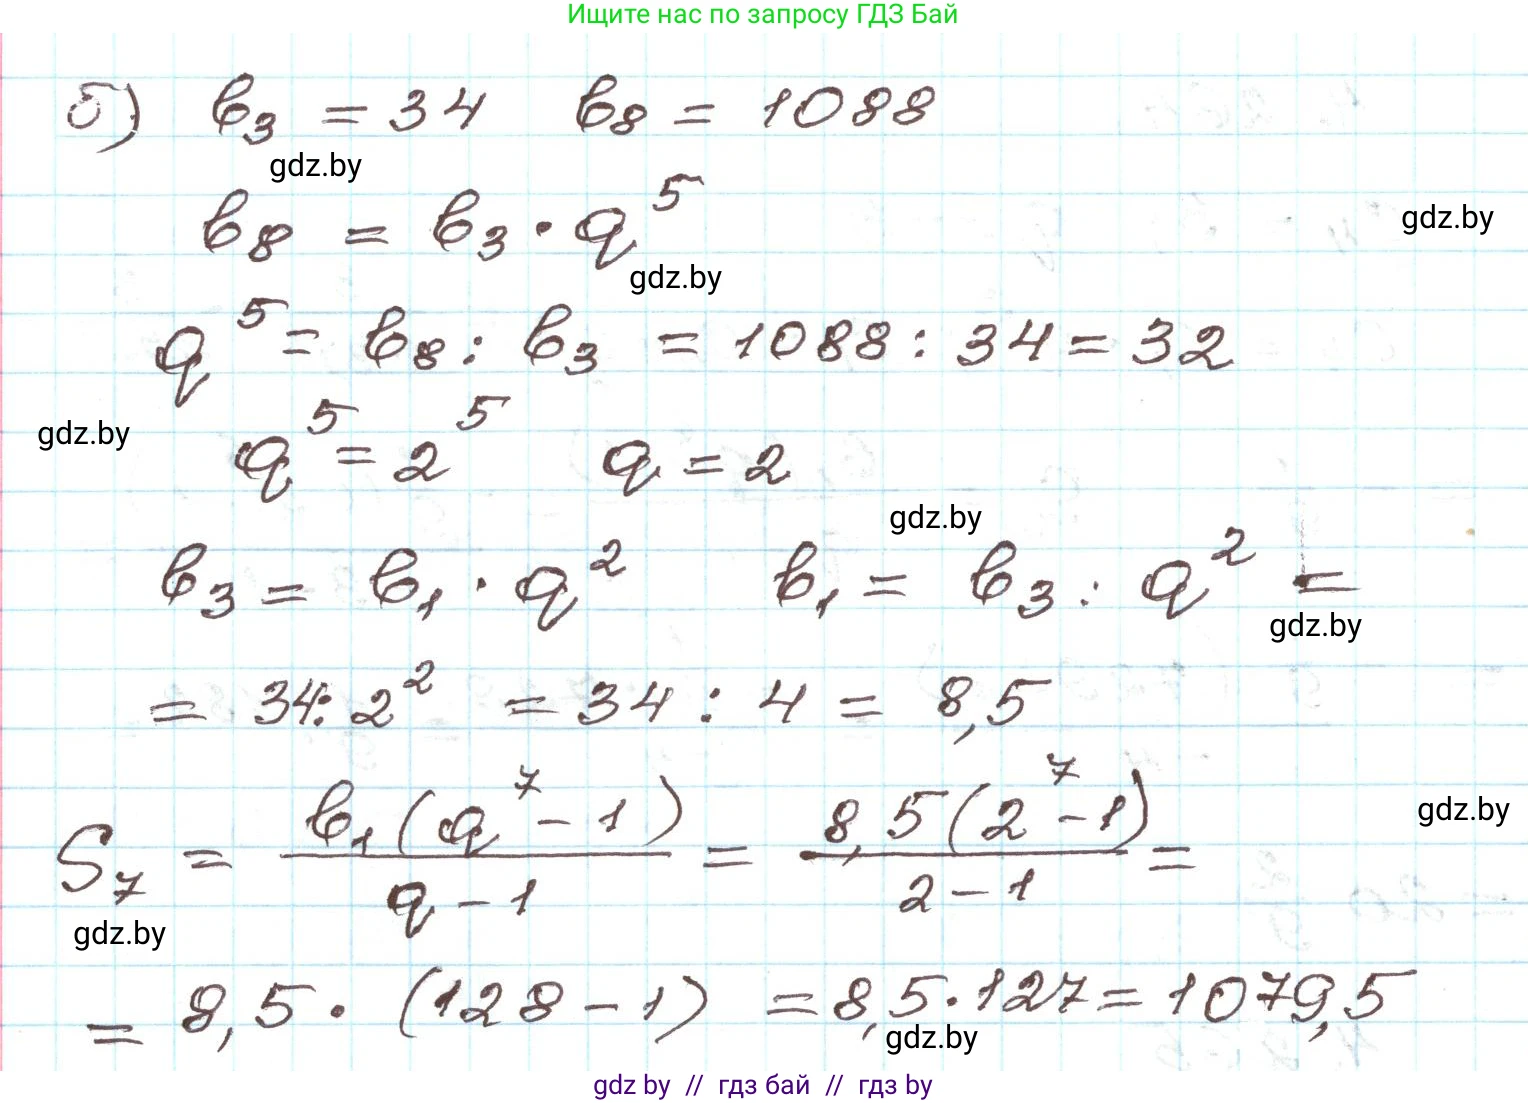 Ищите нас по запросу ГДЗ Бай
б) b₃ = 34 b₈ = 1088
gdz.by
b₈ = b₃ · q⁵
gdz.by
gdz.by
q⁵ = b₈ : b₃ = 1088 : 34 = 32
gdz.by
q⁵ = 2⁵ q = 2
gdz.by
b₃ = b₁ · q² b₁ = b₃ : q² =
gdz.by
= 34 : 2² = 34 : 4 = 8,5
S₇ = b₁(q⁷ - 1) / q - 1 = 8,5(2⁷ - 1) / 2 - 1 =
gdz.by
gdz.by
= 8,5 · (128 - 1) = 8,5 · 127 = 1079,5
gdz.by
gdz by // гдз бай // гдз by